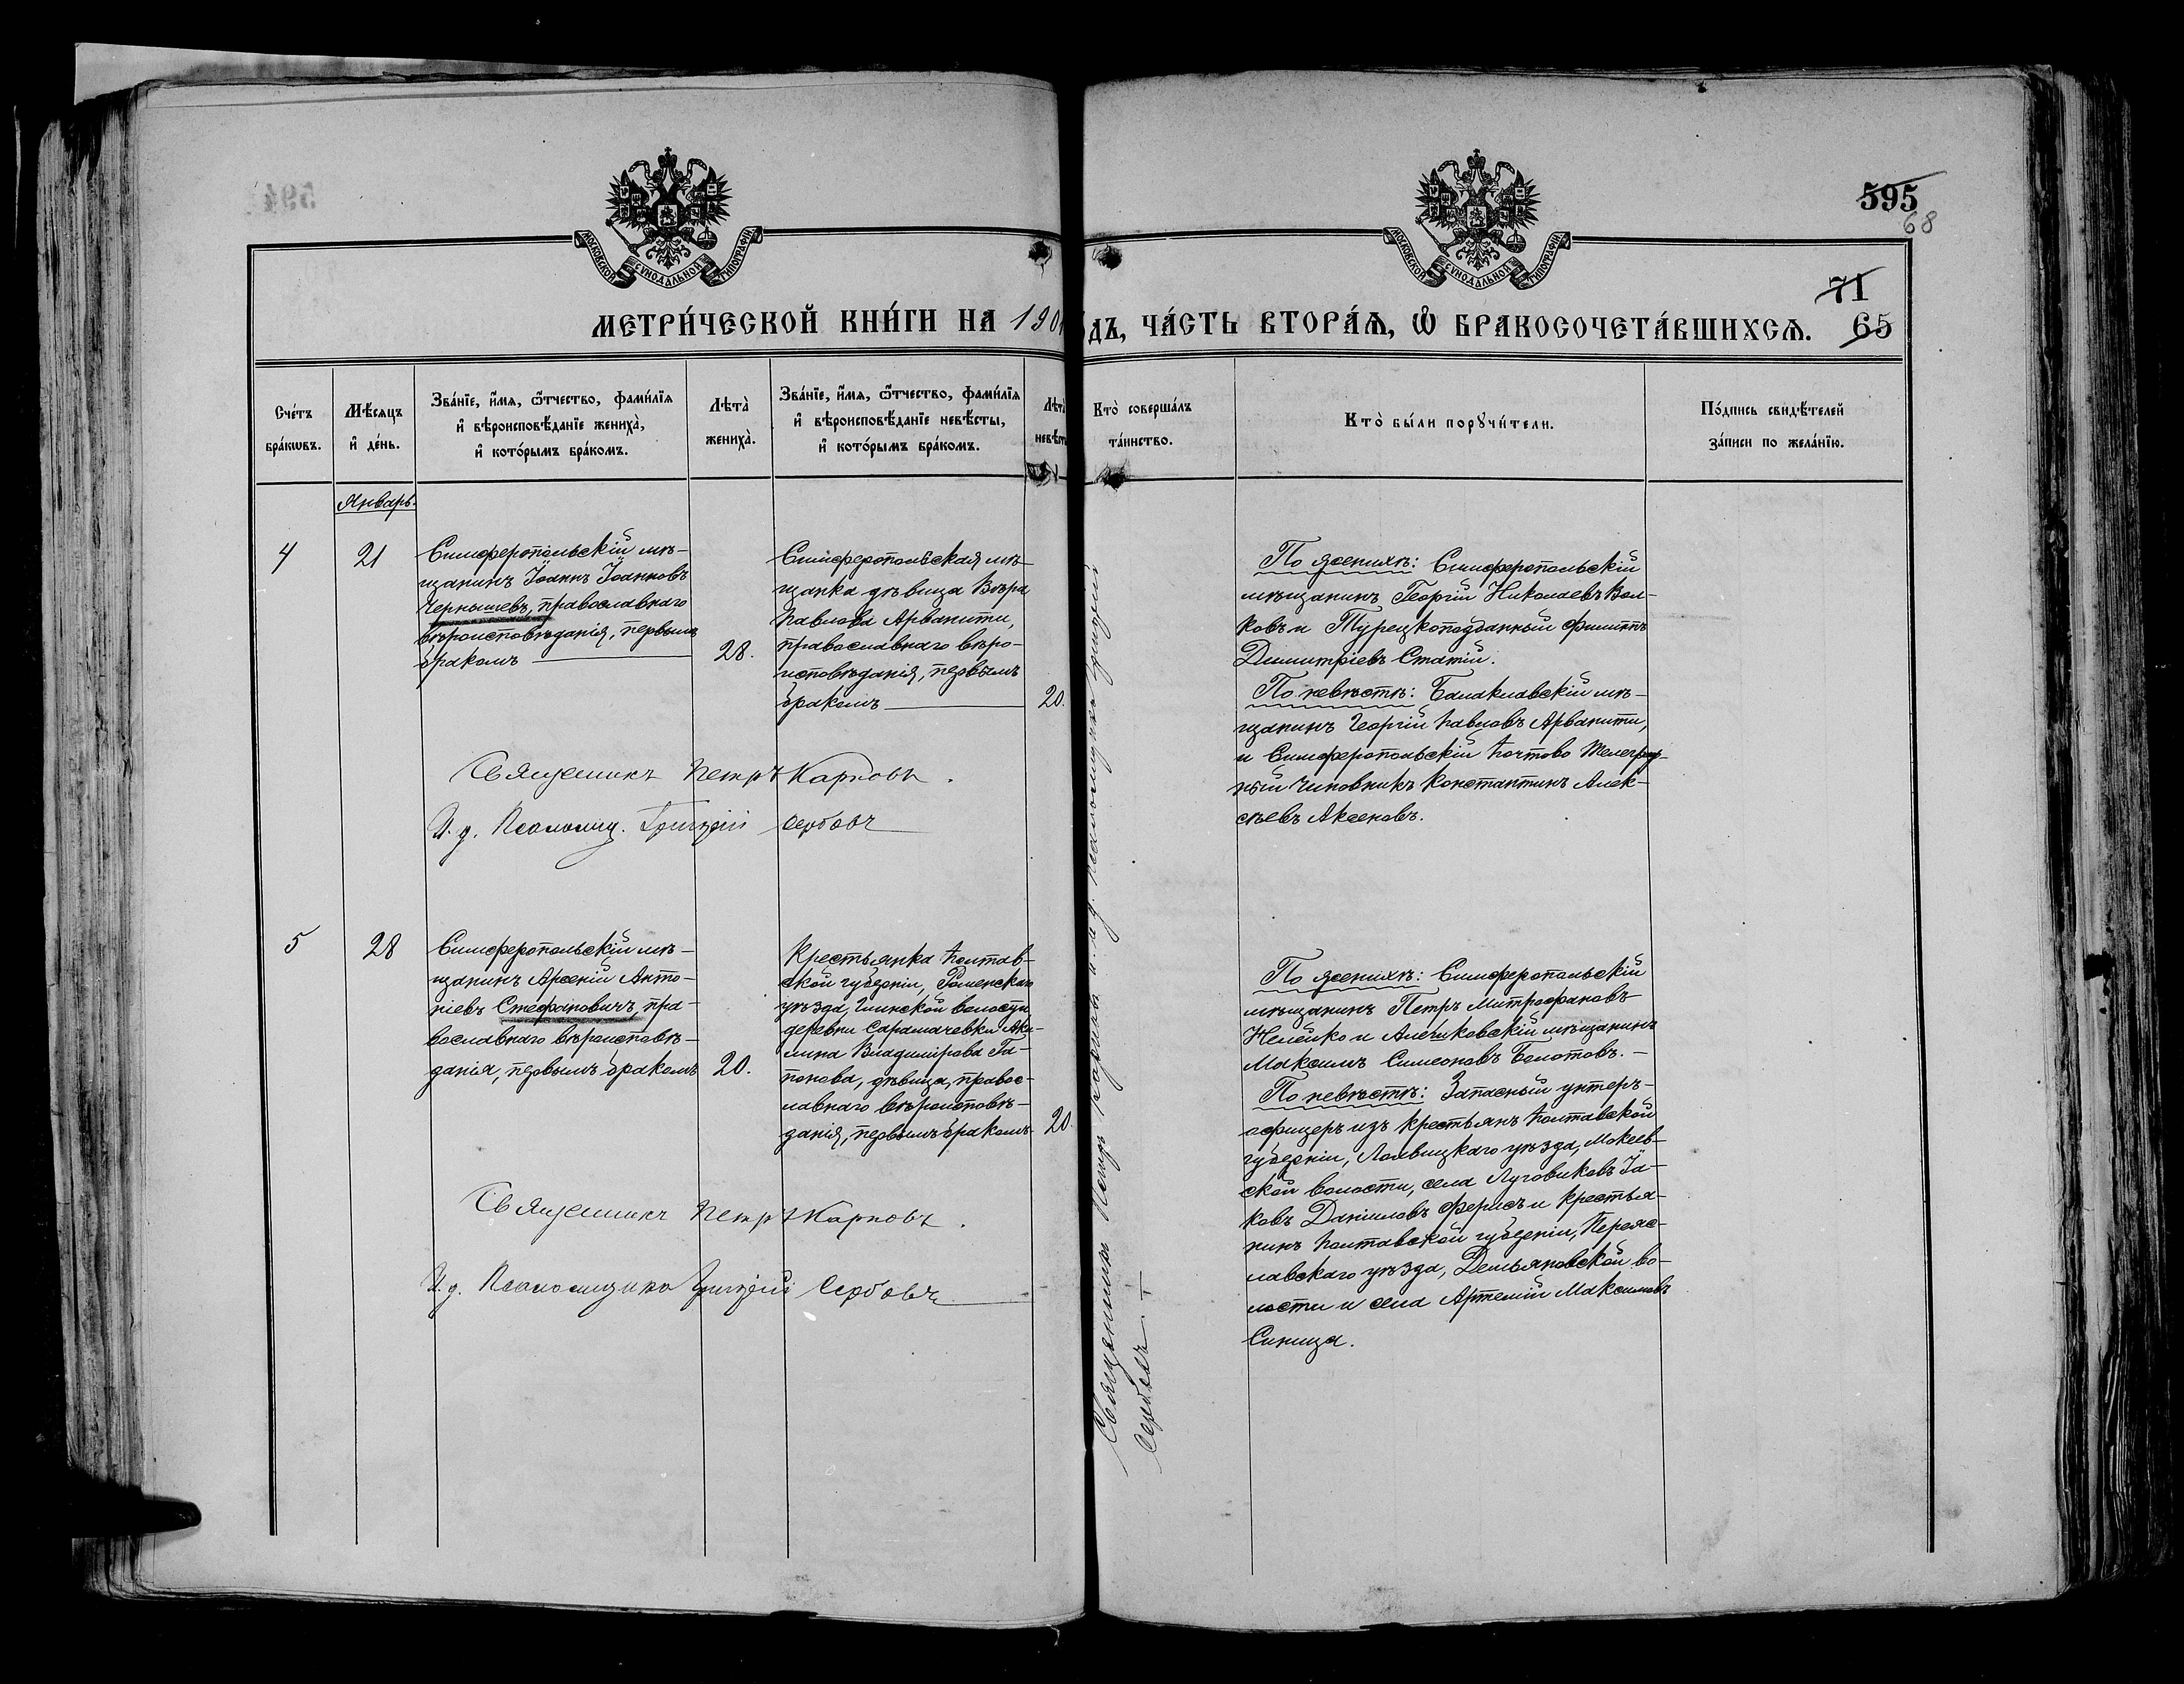 594
595
68
МОСКОВСКОЙ СѴНОДАЛЬНОЙ ТИПОГРАФІИ
МОСКОВСКОЙ СѴНОДАЛЬНОЙ ТИПОГРАФІИ
71
65
МЕТРИ́ЧЕСКОЙ КНИ́ГИ НА 190
ДЪ, ЧА́СТЬ ВТОРА́Ѧ, Ѽ БРАКОСОЧЕТА́ВШИХСѦ.
Сче́тъ
бра́кωвъ.
Мѣ́сѧцъ
и҆ де́нь.
Зва́нїе, и҆́мѧ, ѻ҆́тчество, фами́лїѧ
и҆ вѣроисповѣ́данїе жениха̀,
и҆ кото́рымъ бра́комъ.
Лѣта̀
жениха̀.
Зва́нїе, и҆́мѧ, ѻ҆́тчество, фами́лїѧ
и҆ вѣроисповѣ́данїе невѣ́сты,
и҆ кото́рымъ бра́комъ.
Лѣта
невѣст
Кто̀ соверша́лъ
та́инство.
Кто̀ бы́ли порꙋчи́тели.
По́дпись свидѣ́телей
за́писи по жела́нїю.
Январь.
4
21
Симферопольскій мѣ-
щанинъ Іоаннъ Іоанновъ
Чернышевъ, православнаго
вѣроисповѣданія, первымъ
бракомъ
28.
Симферопольская мѣ-
щанка дѣвица Вѣра
Павлова Арванити,
православнаго вѣро-
исповѣданія, первымъ
бракомъ
20.
Священникъ Петръ Карповъ.
И. д. Псаломщ. Григорій Сербовъ
По женихѣ: Симферопольскій
мѣщанинъ Георгій Николаевъ Вол-
ковъ и Турецкоподданный Филиппъ
Димитріевъ Статій.
По невѣстѣ: Балаклавскій мѣ-
щанинъ Георгій Павловъ Арванити,
и Симферопольскій Почтово Телеграф-
ный Чиновникъ Константинъ Алек-
сѣевъ Аксеновъ.
5
28
Симферопольскій мѣ-
щанинъ Арсеній Анто-
ніевъ Стефановичъ, пра-
вославнаго вѣроисповѣ-
данія, первымъ бракомъ
20.
Крестьянка Полтав-
ской губерніи, Роменскаго
уѣзда, Глинской волости
деревни Сарамачевки Аку-
лина Владимірова Га-
понова, дѣвица, правос-
лавнаго вѣроисповѣ-
данія, первымъ бракомъ
20.
Священникъ Петръ Карповъ.
И. д. Псаломщика Григорій Сербовъ
Священникъ Петръ Карповъ и и. д. псаломщика Григорій
Сербовъ.
По женихѣ: Симферопольскій
мѣщанинъ Петръ Митрофановъ
Нелейко и Алешковскій мѣщанинъ
Максимъ Симеоновъ Болотовъ.-
По невѣстѣ: Запасный унтеръ-
офицеръ изъ крестьянъ Полтавской
губерніи, Лохвицкаго уѣзда, Мокеев-
ской волости, села Луговиковъ Іа-
ковъ Даніиловъ Ферисъ и крестья-
нинъ Полтавской губерніи, Переяс-
лавскаго уѣзда, Демьяновской во-
лости и села Артемій Максимовъ
Синица.